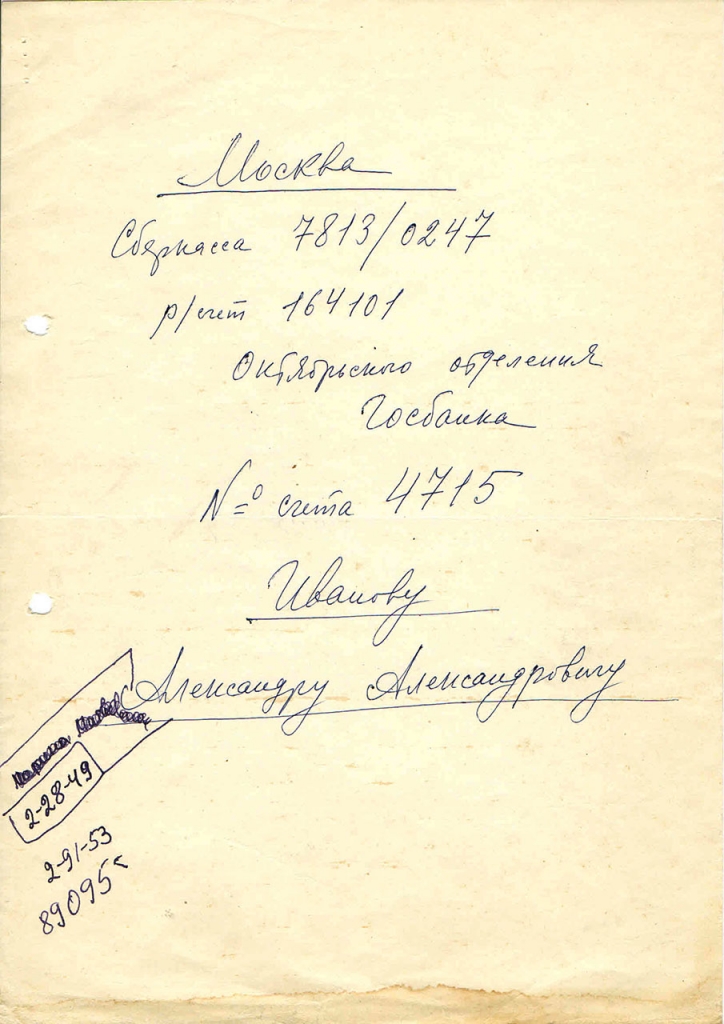 Москва
Сберкасса 7813/0247
р/счет 164101
Октябрьского отделения
Госбанка
№ счета 4715
Иванову
Александру Александровичу
Марина
2-28-49
2-91-53
89095